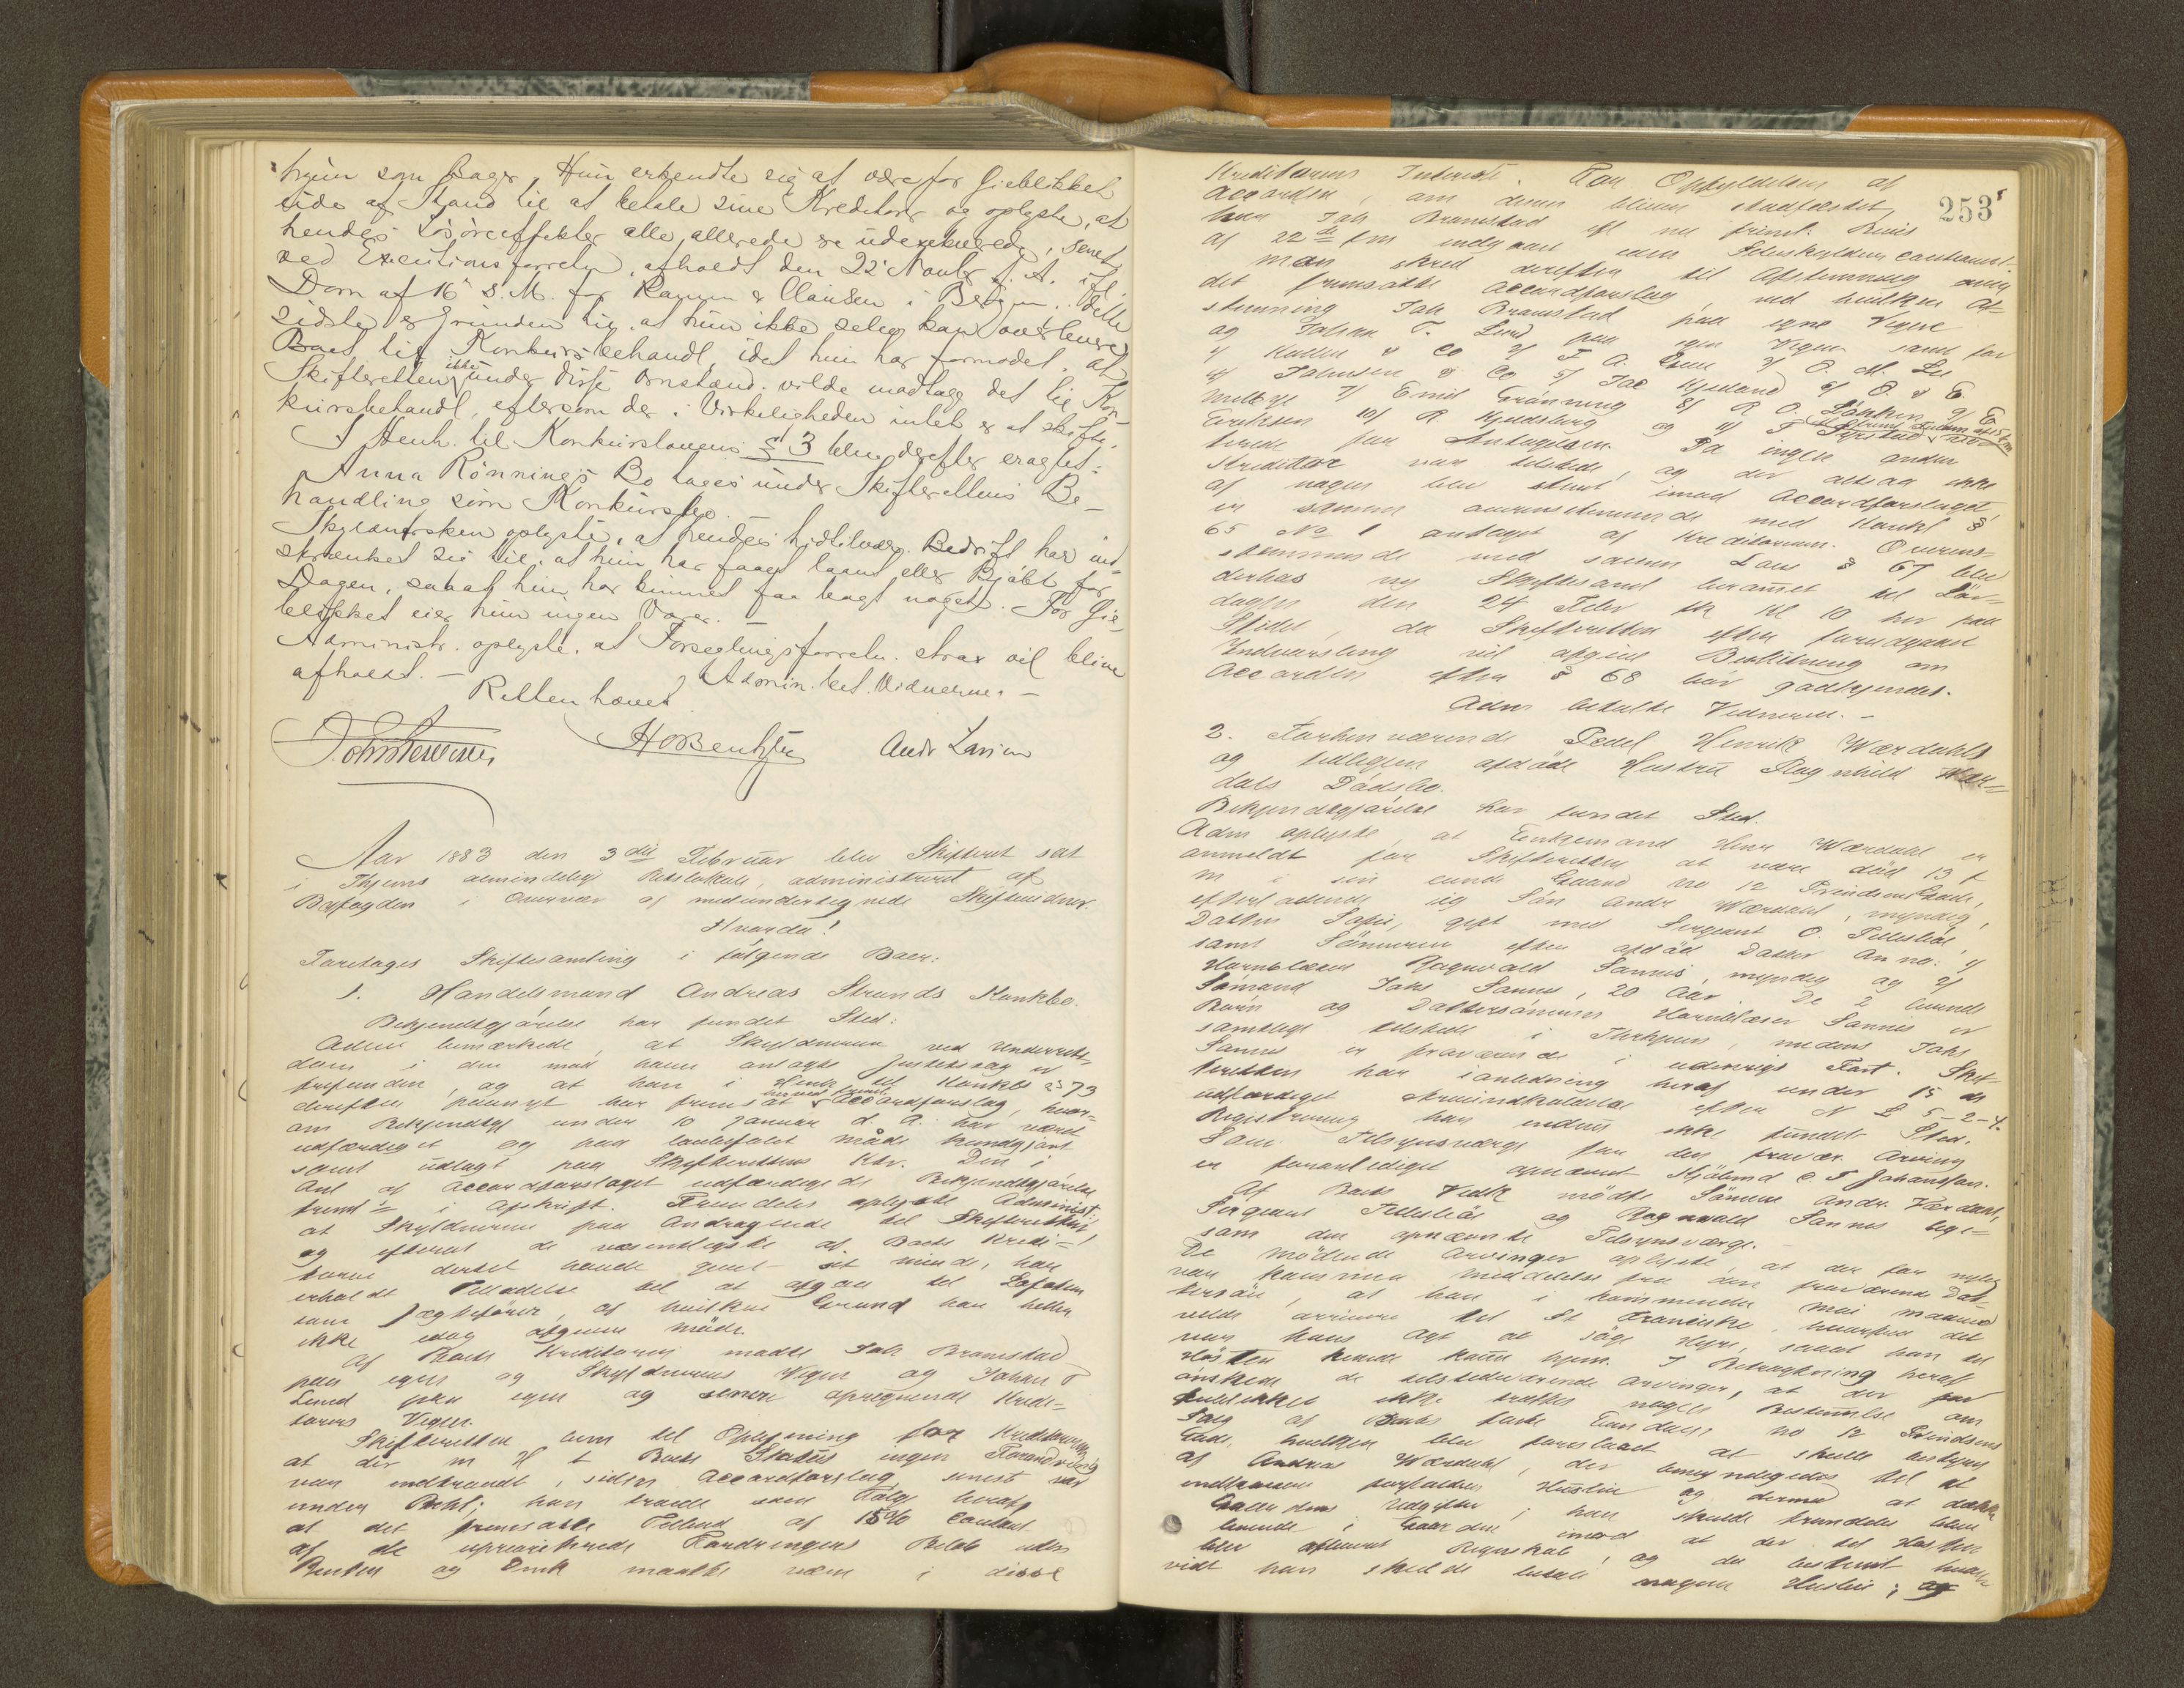 hun som Bager. Hun erkjendte sig at være for Øieblikket
ude af Stand til at betale sine Kreditorer og oplyste, at
hendes Løsøreeffekter alle allerede er udexequerede, senest
ved Executionsforretn. afholdt den 22' Novbr f. A. ifl.
Dom af 16' s. M. for & Clausen i Bergen. Dette
sidste er Grunden til, at hun ikke selv kan overlevere
Boet til Konkursbehandl, idet hun har formodet, at
Skifteretten ikke under disse Omstænd. vilde modtage det til Kon-
kursbehandl, eftersom der i Virkeligheden intet er at skifte.
I Henh. til Konkurslovens § 3 blev derefter eragtet:
Anna Rönnings Bo tages under Skifterettens Be-
handling som Konkursbo.
Skyldnersken oplyste, at hendes hidtilvær. Bedrift har ind-
skrænket sig til, at hun har faaet laant eller kjøbt for
Dagen, saaat hun har kunnet faa bagt noget. For Øie-
blikket eier hun ingen Varer.
Administr. oplyste, at Forseglingsforretn. strax vil blive
afholdt. — Admin. bet. Vidnerne. —
Retten hævet
HBBentzen Andr Larsen
Aar 1883 den 3die Februar blev Skifteret sat
i Thjems almindelige Retslokale, administreret af
Byfogden i Overvær af medundertegnede Skiftevidner.
Hvorda!
Foretages Skiftesamling i følgende Boer:
1. Handelsmand Andreas Strands Konkbo.
Bekjendtgjørelse har fundet Sted:
Adm bemærkede, at Skyldneren ved Underrets-
dom i den mod ham anlagte Justitssag er
frifunden, og at han i Henh til Konkls § 73
derefter paanyt har fremsat Accordforslag, hvor-
om Bekjendtgj under 10 Januar d. A. har været
udfærdiget og paa lovbefalet Måde kundgjort
samt udlagt paa Skifterettens Ktr. Den i
Anl af Accordforslaget udfærdigede Bekjendtgjørelse
freml's i Afskrift. Fremdeles oplyste Administ:
at Skyldneren paa Andragende til Skifteretten
og efterat de væsentligste af Boets Kredi-
torer dertil havde givet sit Minde, har
erholdt Tilladelse til at afgaa til Lofoten
som Jægtefører, af hvilken Grund han heller
ikke idag afgiver Møde.
Af Boets Kreditorer mødte Joh Bramstad
paa egne og Skyldnerens Vegne og Johan F
Lund paa egne og senere opregnede Kredi-
torers Vegne.
Skifteretten kom til Oplysning for Kreditorerne
at der m H t Boets Status ingen Forandring
var indtraadt, siden Accordforslag sidst var
under Behl; han troede som Følge heraf
at det fremsatte Tilbud af 15% Contant
af de uprioriterede Fordringers Beløb uden
Renter og Omk maatte være i disse
253
Kreditorers Interesse. For Opfyldelsen af
Accorden, om denne bliver stadfæstet,
har Joh Bramstad ifl nu freml. Bevis
af 22de f m indgaaet som Selvskyldnercautionist.
Man skred derefter til Afstemning over
det fremsatte Accordforslag, ved hvilken Af-
stemning Joh Bramstad paa egne Vegne
og Johan F. Lund paa egne Vegne samt for
& Co 2/ F. A. 3/ O. M. Lie
4/ Johnsen & Co 5/ Jac Kjeldand 6/ O. & E.
7/ Emil Grønning 8/ R O. Löchen 9/ E
Eriksen 10/ R. Kjeldsberg og 11/ F
terede for Antagelsen. Da ingen anden
Kreditor var tilstede, og der altsaa ikke
af nogen blev stemt imod Accordforslaget,
er samme overensstemmende med Konkl §
65 No 1 antaget af Kreditorerne. Overens-
stemmende med samme Lovs § 67 blev
derhos ny Skiftesaml berammet til Lör-
dagen den 24 Febr Kl 10 her paa
Stedet, da Skifteretten efter forudgaaet
Undersøgning vil afgive Beslutning om
Accorden efter § 68 bör godkjendes.
Adm betalte Vidnerne. —
2. Forhenværende Pedel Henrik Wærdahls
og tidligere afdøde Hustru Ragnhild Wær-
dals Dödsbo.
Bekjendtgjørelse har fundet Sted.
Adm oplyste, at Enkemand Henr Wærdahl er
anmeldt for Skifteretten at være död 13 f
M i sin eiende Gaard No 12 Prindsens Gade,
efterladende sig Sön Andr Wærdahl, myndig,
Datter Sofie, gift med Sergeant O. Tellesbø,
samt Sönnerne efter afdöd Datter Anna: 1/
Hornblæser Ragnvald Sannes, myndig og 2/
Sömand Johs Sannes, 20 Aar. De 2
Børn og Dattersønnen Hornblæser Sannes er
samtlige tilstede i Thrhjem, medens Johs
Sannes er fraværende i udenrigs Fart. Skif-
teretten har i anledning heraf under 15 ds
udfærdiget Arveindkaldelse efter N L 5-2-4.
Registrering har endnu ikke fundet Sted.
Som Tilsynsværge for den fravær. Arving
er foranlediget opnævnt C. F. Johansson.
Af Boets Vedk mødte Sönnen Andr. Værdahl,
Sergeant Tellesbø og Ragnvald Sannes lige-
som den opnævnte Tilsynsværge.
De mødende Arvinger oplyste, at der for nylig
var kommen Meddelelse fra den fraværende Dat-
tersön, at han i kommende Mai Maaned
vilde arrivere til St Francisko, hvorfra det
var hans Agt at söge Hyre, saaat han til
Hösten kunde komme hjem. I Betragtning heraf
ønskede de tilstedeværende Arvinger, at der for
Øieblikket ikke træffes nogen Bestemmelse om
Salg af Boets faste Eiendom No 12 Prindsens
Gade, hvilken blev foreslaaet at skulle bestyres
af Andreas Wærdahl, der bemyndigedes til at
indkræve forfalden Husleie og dermed at dække
Gaardens Udgifter; han skulde fremdeles blive
boende i Gaarden imod at der til Hösten
blev aflevert Regnskab, og da bestemt hvor-
vidt han skulde betale nogen Husleie; og